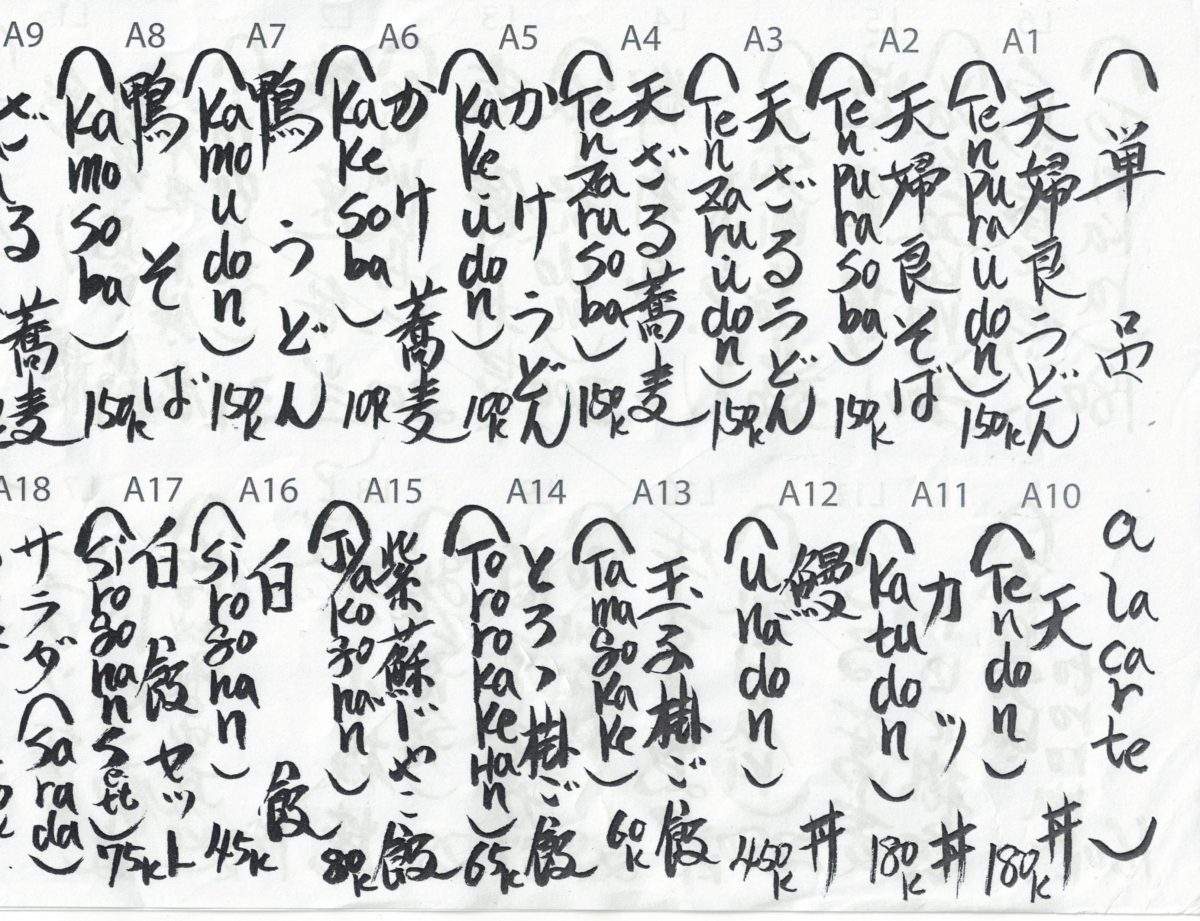 （単品
A1
天婦羅うどん
（Tenpura udon）150k
A2
天婦良そば
（Tenpura soba）150k
A3
天ざるうどん
（Tenzaru udon）150k
A4
天ざる蕎麦
（Tenzaru soba）150k
A5
かけうどん
（Kake udon）100k
A6
かけ蕎麦
（Kake soba）100k
A7
鴨うどん
（Kamo udon）150k
A8
鴨そば
（Kamo soba）150k
A9
ざる蕎麦
a la carte）
A10
天丼
（Tendon）180k
A11
カツ丼
（Katudon）180k
A12
鰻丼
（unadon）450k
A13
玉子掛ご飯
（Tamagokake）60k
A14
とろゝ掛ご飯
（Tororokakehan）65k
A15
紫蘇じゃこ飯
（Jyakogohan）80k
A16
白飯
（Sirogohan）45k
A17
白飯セット
（Sirogohan Sett）75k
A18
サラダ（Sarada）